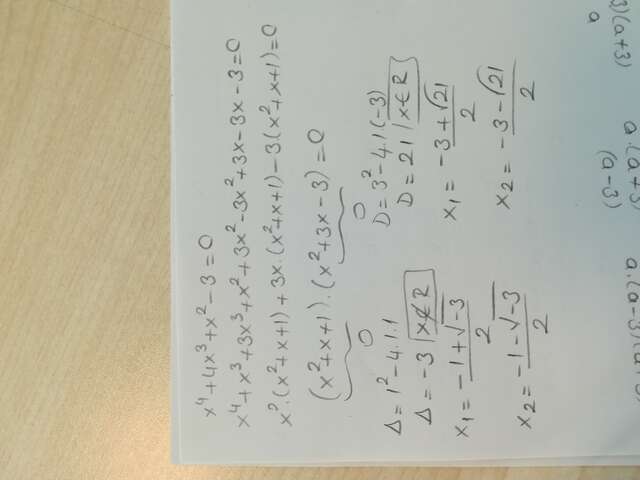 x⁴+4x³+x²-3=0
x⁴+x³+3x³+x²+3x²-3x²+3x-3x-3=0
x²·(x²+x+1)+3x·(x²+x+1)-3(x²+x+1)=0
(x²+x+1)·(x²+3x-3)=0
0
Δ=1²-4.1.1
Δ=-3 |x∉R
x₁=-1+√-3/2
x₂=-1-√-3/2
0
D=3²-4.1(-3)
D=21 |x∈R
x₁=-3+√21/2
x₂=-3-√21/2
(a+3)
a
a·(a+3)
(a-3)
a·(a-3)